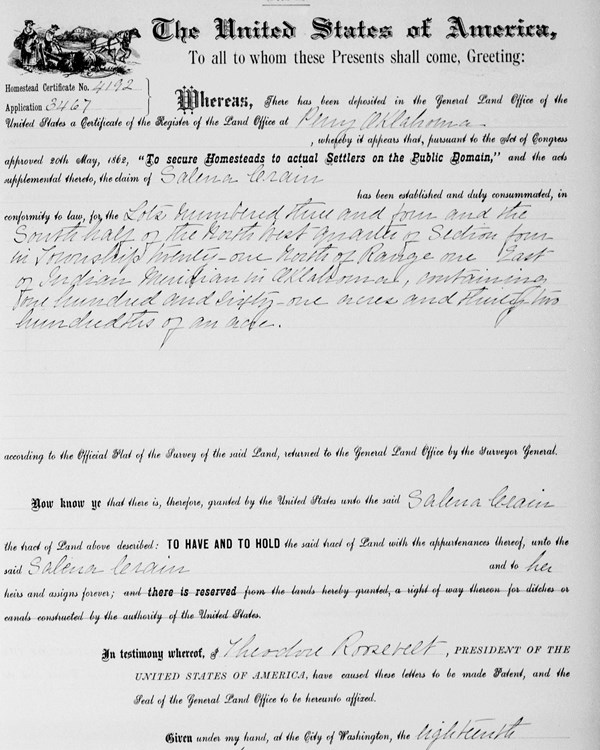 The United States of America,
To all to whom these Presents shall come, Greeting:
Homestead Certificate No. 4192
Application 3467
Whereas, There has been deposited in the General Land Office of the
United States a Certificate of the Register of the Land Office at Perry Oklahoma
, whereby it appears that, pursuant to the Act of Congress
approved 20th May, 1862, "To secure Homesteads to actual Settlers on the Public Domain," and the acts
supplemental thereto, the claim of Salena Crain
has been established and duly consummated, in
conformity to law, for the Lots numbered three and four and the
South half of the North West quarter of Section four
in Township twenty-one North of Range one East
of Indian Meridian in Oklahoma, containing
one hundred and sixty-one acres and thirty two
hundredths of an acre.
according to the Official Plat of the Survey of the said Land, returned to the General Land Office by the Surveyor General.
Now know ye that there is, therefore, granted by the United States unto the said Salena Crain
the tract of Land above described: TO HAVE AND TO HOLD the said tract of Land with the appurtenances thereof, unto the
said Salena Crain and to her
heirs and assigns forever; and there is reserved from the lands hereby granted, a right of way thereon for ditches or
canals constructed by the authority of the United States.
In testimony whereof, I Theodore Roosevelt, PRESIDENT OF THE
UNITED STATES OF AMERICA, have caused these letters to be made Patent, and the
Seal of the General Land Office to be hereunto affixed.
Given under my hand, at the City of Washington, the eighteenth